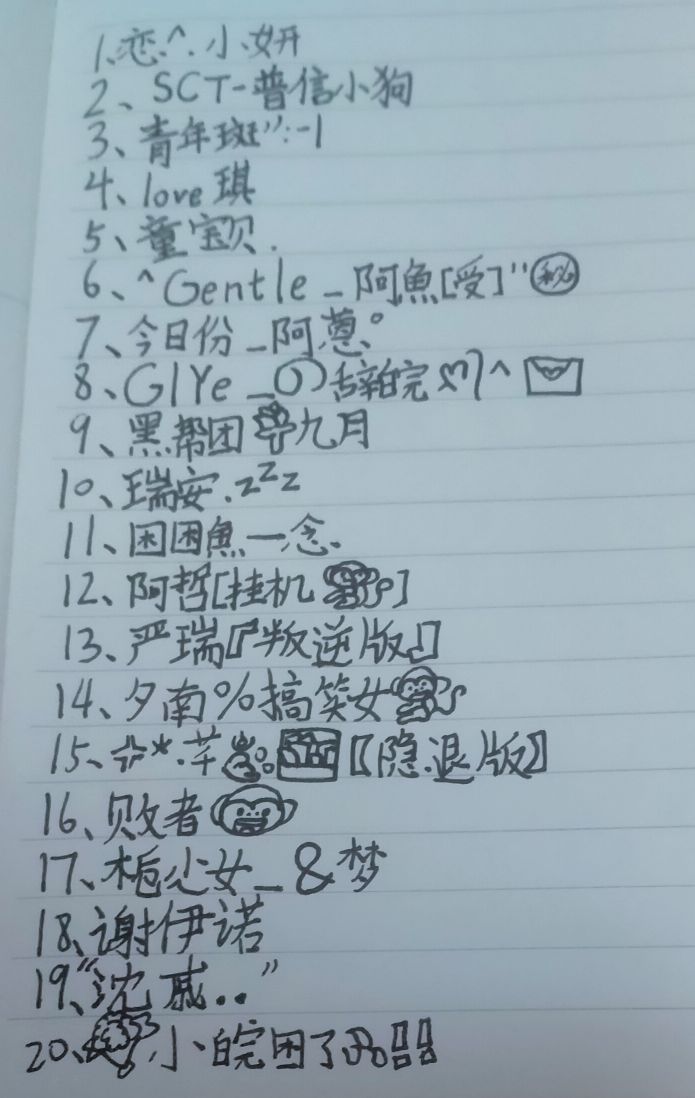 1、恋.^.小妍
2、SCT-普信小狗
3、青年斑”:-1
4、love琪
5、童宝贝.
6、^Gentle_阿魚[受]"㊙
7、今日份_阿蔥°
8、GlYe_の辞皖 ^
9、黑帮团 九月
10、瑞安.zZz
11、困困魚一念.
12、阿哲[挂机 ]
13、严瑞『叛逆版』
14、夕南%搞笑女
15、*.芊 【隐退版】
16、败者
17、栀少女_&梦
18、谢伊诺
19、“沈戚..”
20、小皖困了